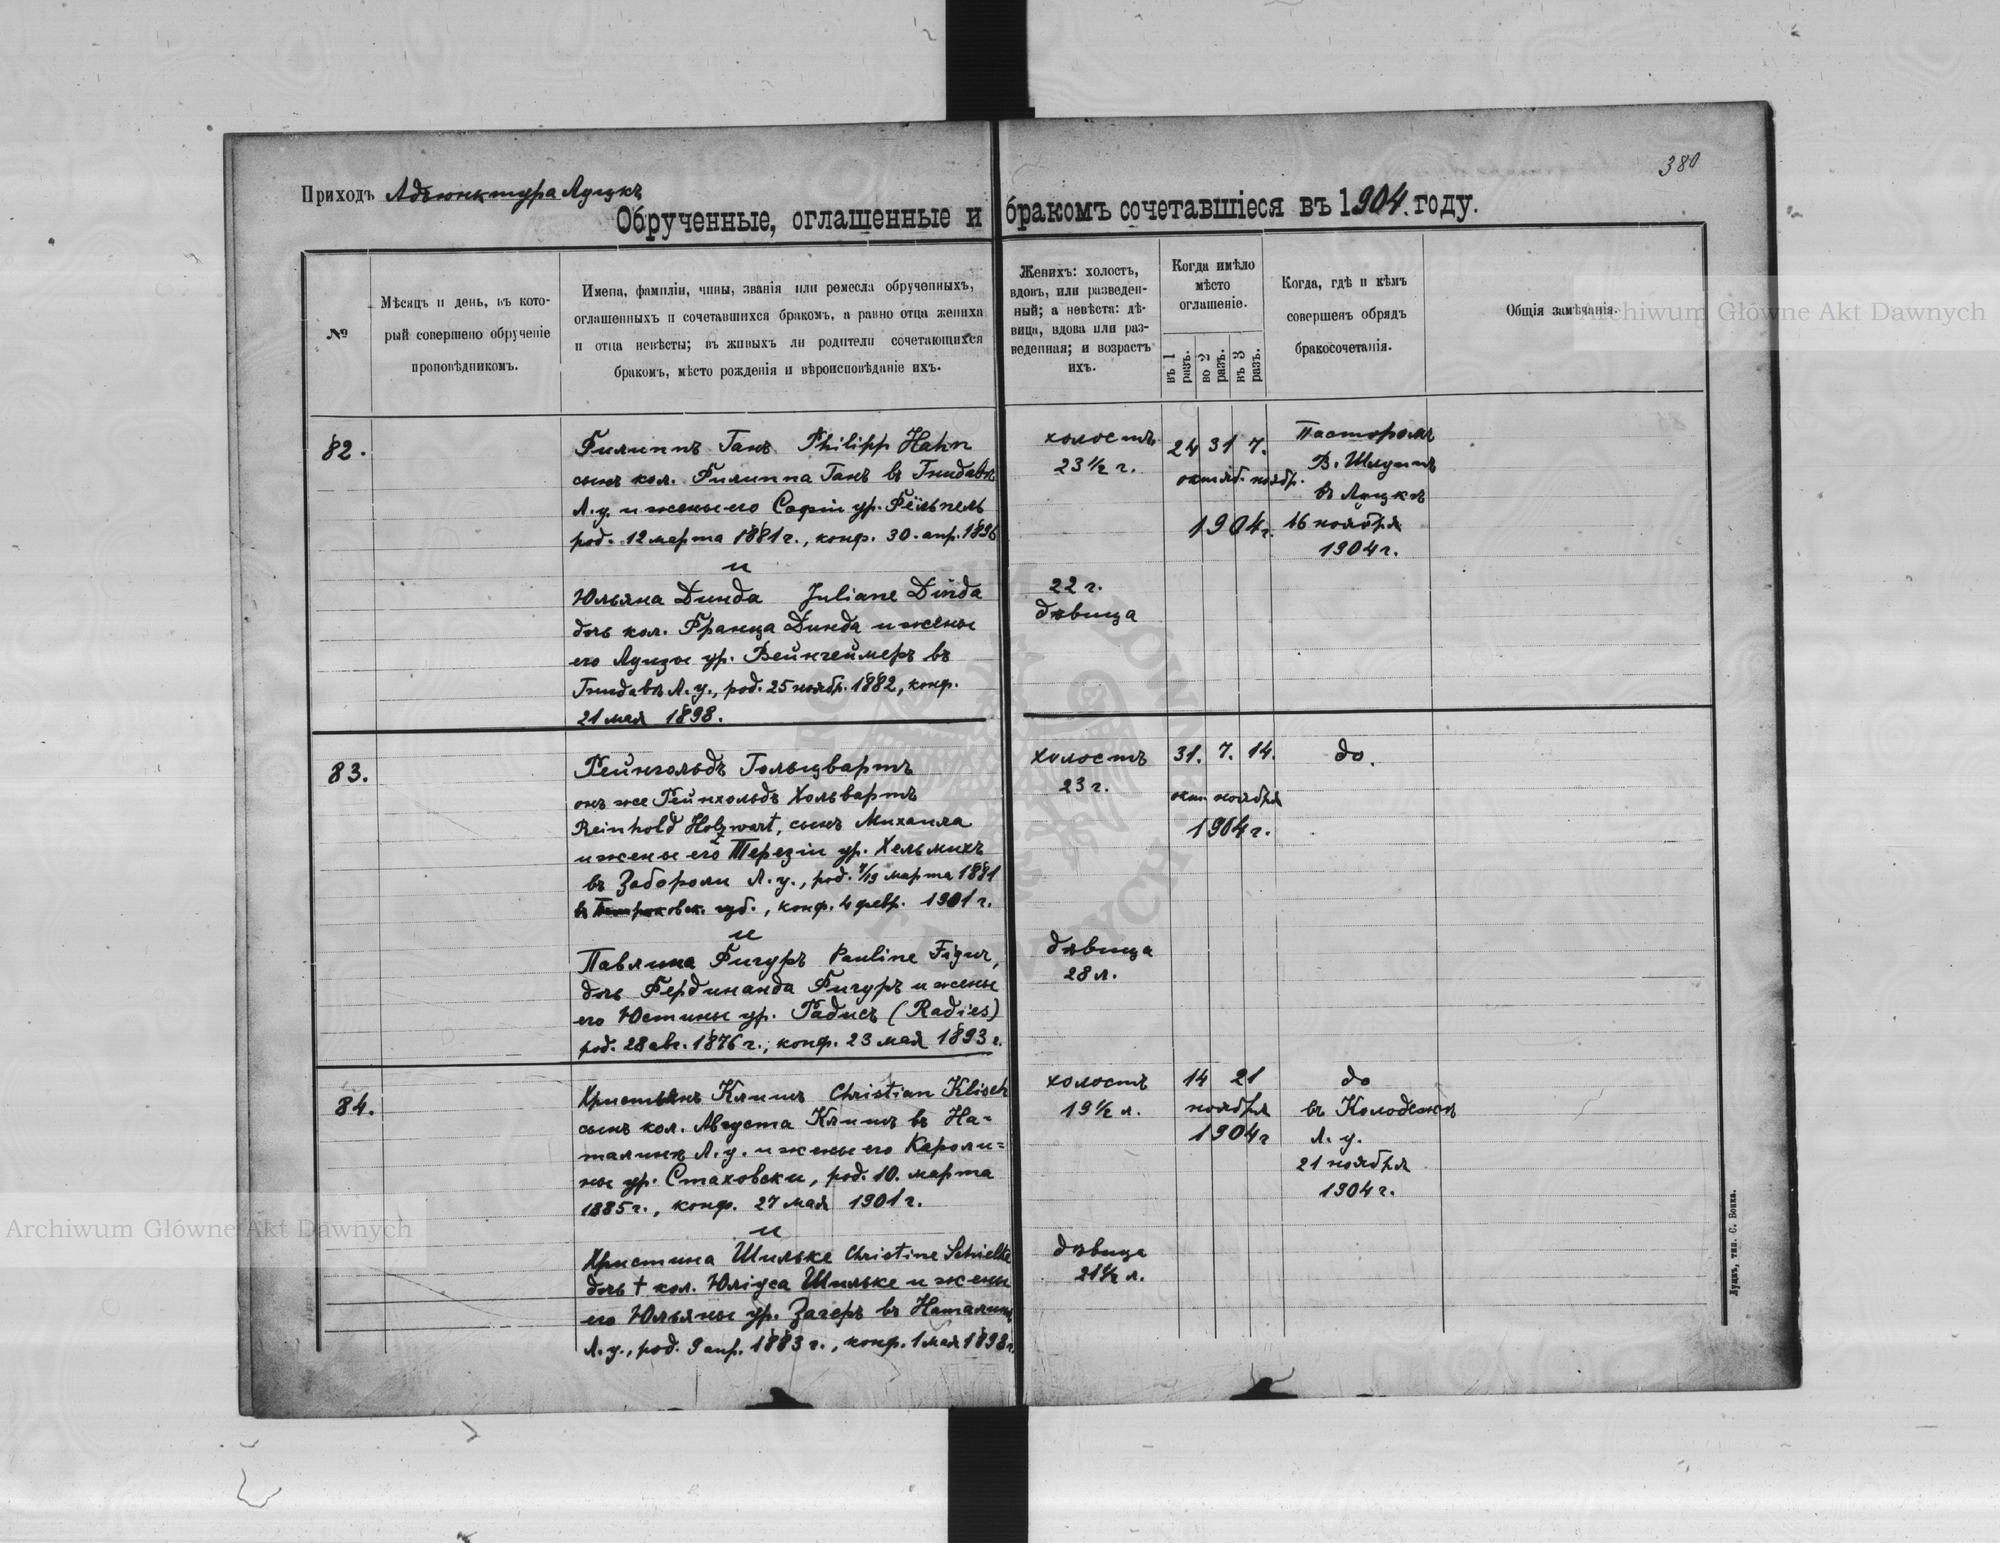 380
Приходъ Адъюнктура Луцкъ
Обрученные, оглашенные и бракомъ сочетавшіеся въ 1904. году.
№
Мѣсяцъ и день, въ кото-
рый совершено обрученіе
проповѣдникомъ.
Имена, фамиліи, чины, званія или ремесла обрученныхъ,
оглашенныхъ и сочетавшихся бракомъ, а равно отца жениха
и отца невѣсты; въ живыхъ ли родители сочетающихся
бракомъ, мѣсто рожденія и вѣроисповѣданіе ихъ.
Женихъ: холостъ,
вдовъ, или разведен-
ный; а невѣста: дѣ-
вица, вдова или раз-
веденная; и возрастъ
ихъ.
Когда имѣло
мѣсто
оглашеніе.
въ 1 разъ.
во 2 разъ.
въ 3 разъ.
Когда, гдѣ и кѣмъ
совершенъ обрядъ
бракосочетанія.
Общія замѣчанія.
82.
Филиппъ Ганъ Philipp Hahn
сынъ кол. Филиппа Ганъ въ Гнидавѣ
Л. у. и жены его Софіи ур. Фёльпель
род. 12 марта 1881 г., конф. 30. апр. 1896
и
Юльяна Динда Juliane Dinda
дочь кол. Франца Динда и жены
его Луизы ур. Вейнгеймеръ въ
Гнидавѣ Л. у., род. 25 ноябр. 1882, конф.
21 мая 1898.
холостъ
23 ½ г.
22 г.
дѣвица
24 31 7.
октяб. ноябр.
1904 г.
Пасторомъ
В. Шлуппъ
въ Луцкѣ
16 ноября
1904 г.
83.
Рейнгольдъ Гольцвартъ
онъ же Рейнхольдъ Хольвартъ
Reinhold Holzwart, сынъ Михаила
и жены его Терезіи ур. Хельмихъ
въ Забороли Л. у., род. 7/19 марта 1881
въ Петроковск. губ., конф. 4 февр. 1901 г.
и
Павлина Фигуръ Pauline Figur,
дочь Фердинанда Фигуръ и жены
его Юстины ур. Радисъ (Radies)
род. 28 авг. 1876 г., конф. 23 мая 1893 г.
холостъ
23 г.
дѣвица
28 л.
31. 7. 14.
окт. ноября
1904 г.
до.
84.
Христьянъ Клишъ Christian Klisch
сынъ кол. Августа Клишъ въ На-
талинѣ Л. у. и жены его Кароли-
ны ур. Стаховски, род. 10. марта
1885 г., конф. 27 мая 1901 г.
и
Христина Шильке Christine Schielke
дочь † кол. Юліуса Шильке и жены
его Юльяны ур. Загеръ въ Наталинѣ
Л. у., род. 9 апр. 1883 г., конф. 1 мая 1898 г.
холостъ
19 ½ л.
дѣвица
21 ½ л.
14 21
ноября
1904 г
до
въ Колоденкѣ
Л. у.
21 ноября
1904 г.
Луцкъ, тип. С. Бонка.
Archiwum Główne Akt Dawnych
Archiwum Główne Akt Dawnych